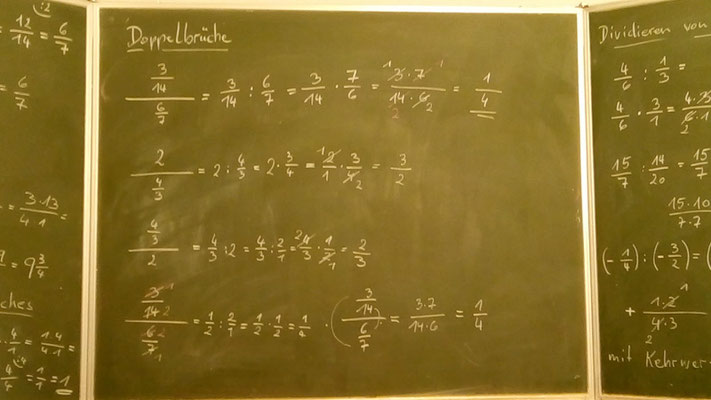 12/14 = 6/7
= 6/7
= 3·13/4·1 =
= 9 3/4
ches
· 4/1 = 1·4/4·1 =
4/4 = 1/1 = 1
Doppelbrüche
(3/14)/(6/7) = 3/14 : 6/7 = 3/14 · 7/6 = 3·7/14·6 = 1/4
2/(4/3) = 2 : 4/3 = 2 · 3/4 = 2/1 · 3/4 = 3/2
(4/3)/2 = 4/3 : 2 = 4/3 : 2/1 = 4/3 · 1/2 = 2/3
(3/14)/(6/7) = 1/2 : 2/1 = 1/2 · 1/2 = 1/4 · ((3/14)/(6/7)) = 3·7/14·6 = 1/4
Dividieren von
4/6 : 1/3 =
4/6 · 3/1 =
15/7 : 14/20 = 15/7
15·10/7·7
(- 1/4) : (- 3/2) = (
+ 1·2/4·3
mit Kehrwer